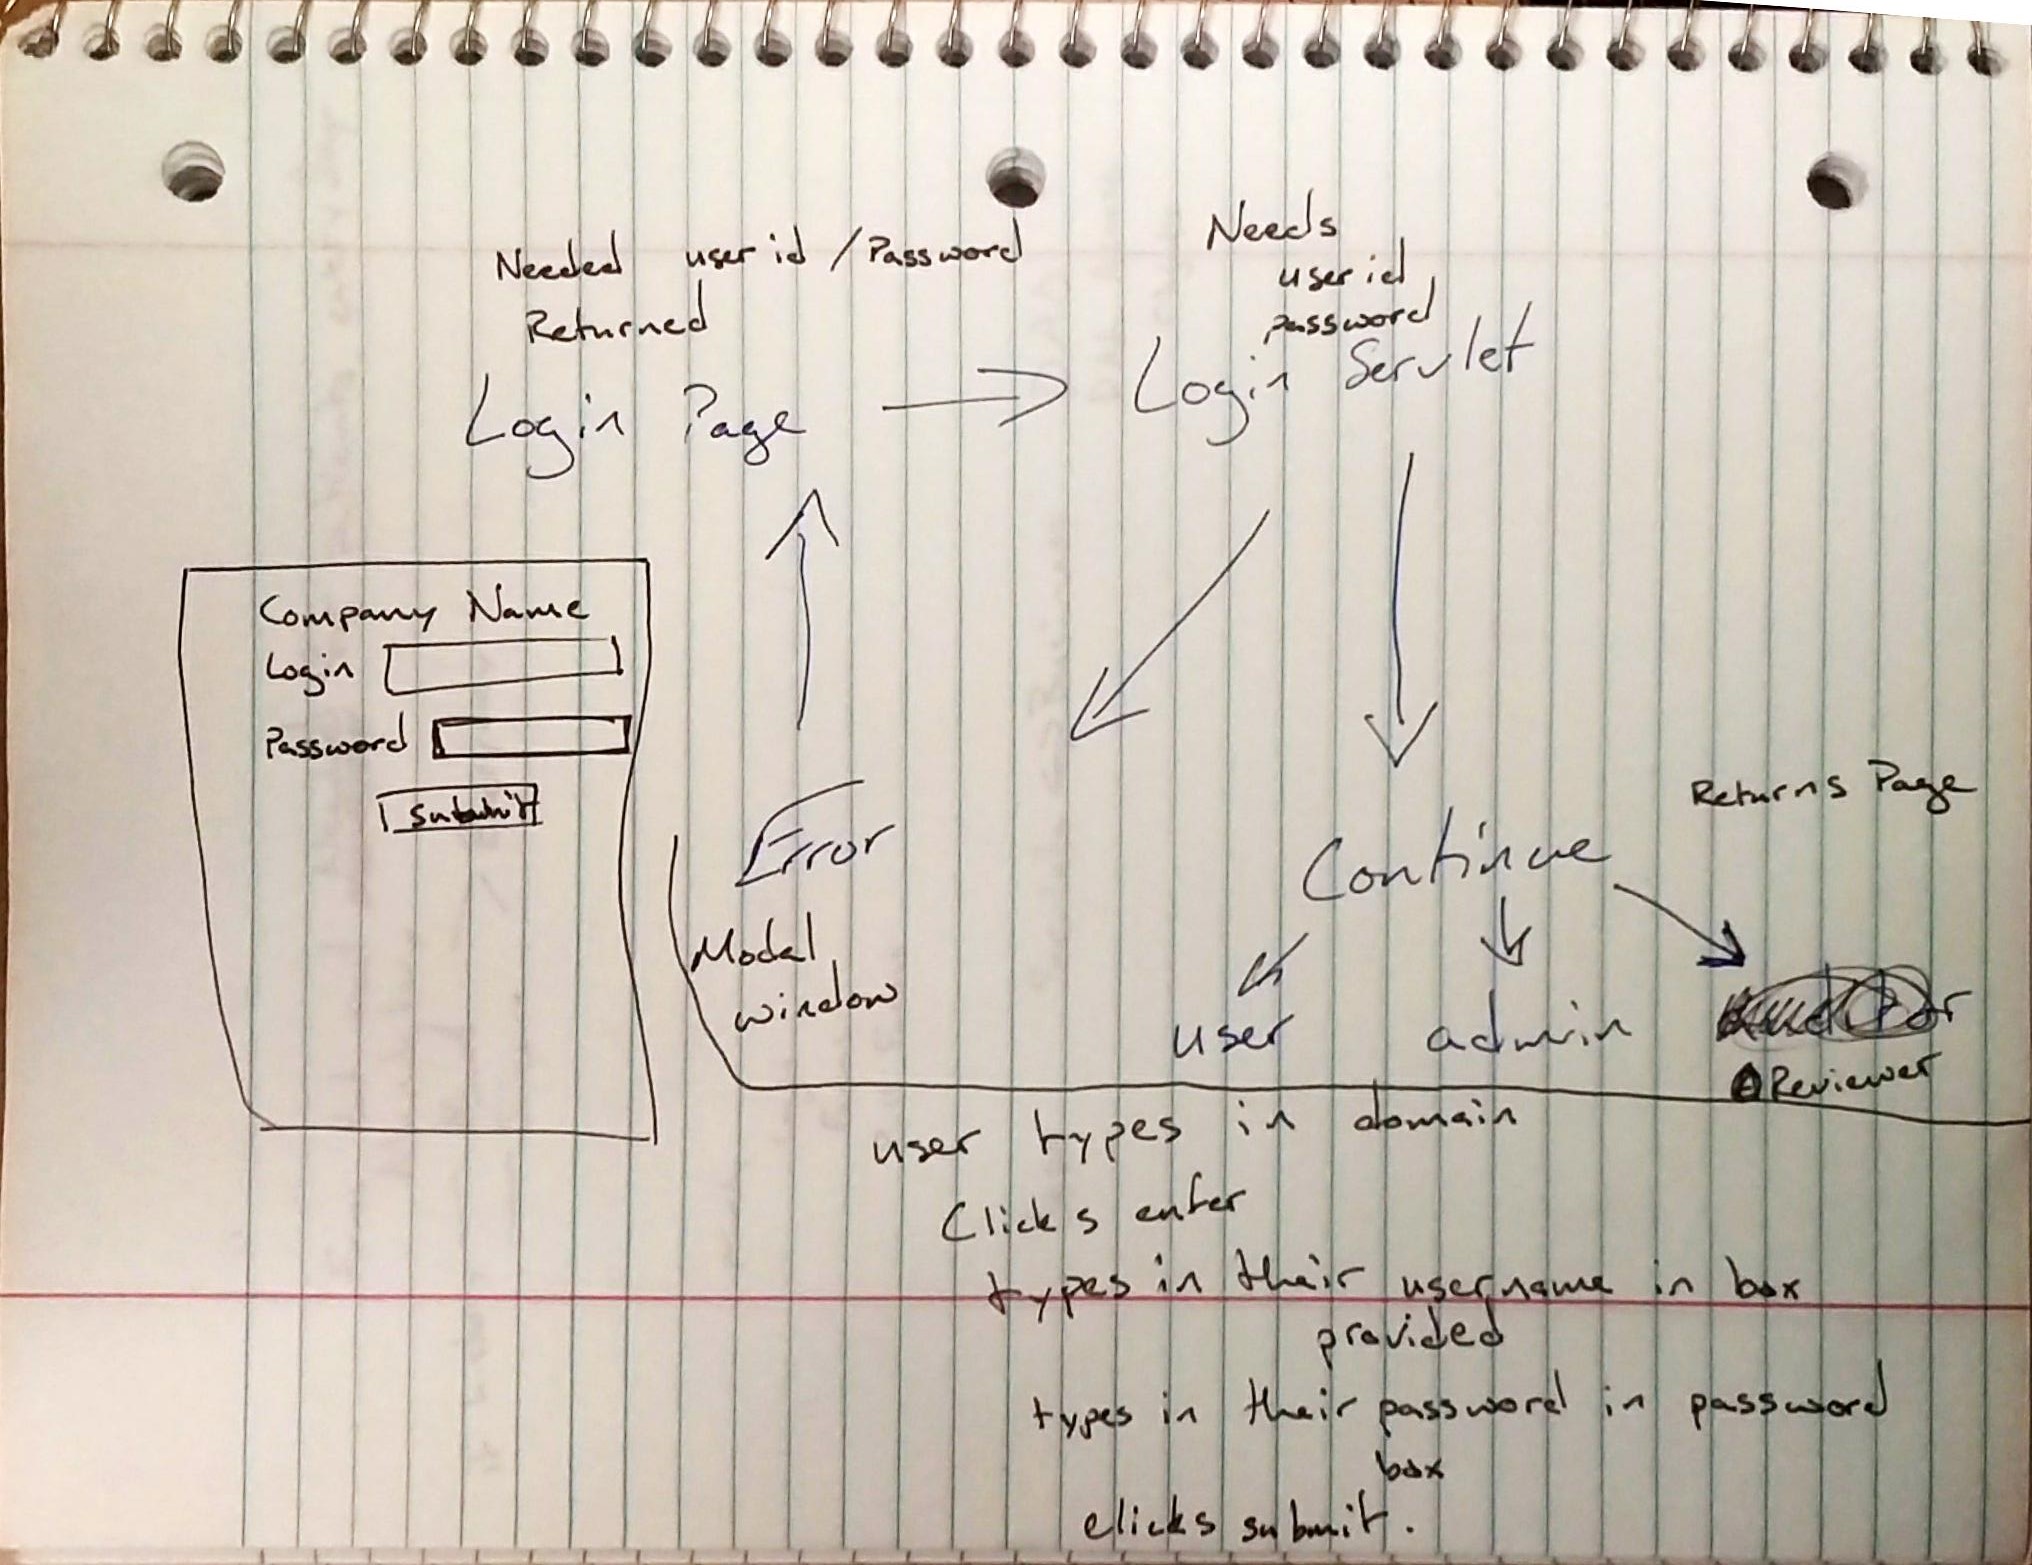 Needed user id / Password
Returned
Login Page
Needs
user id
password
Login Servlet
Company Name
Login
Password
Submit
Error
Modal
window
Returns Page
Continue
user
admin
Reviewer
user types in domain
Clicks enter
types in their username in box
provided
types in their password in password
box
clicks submit.